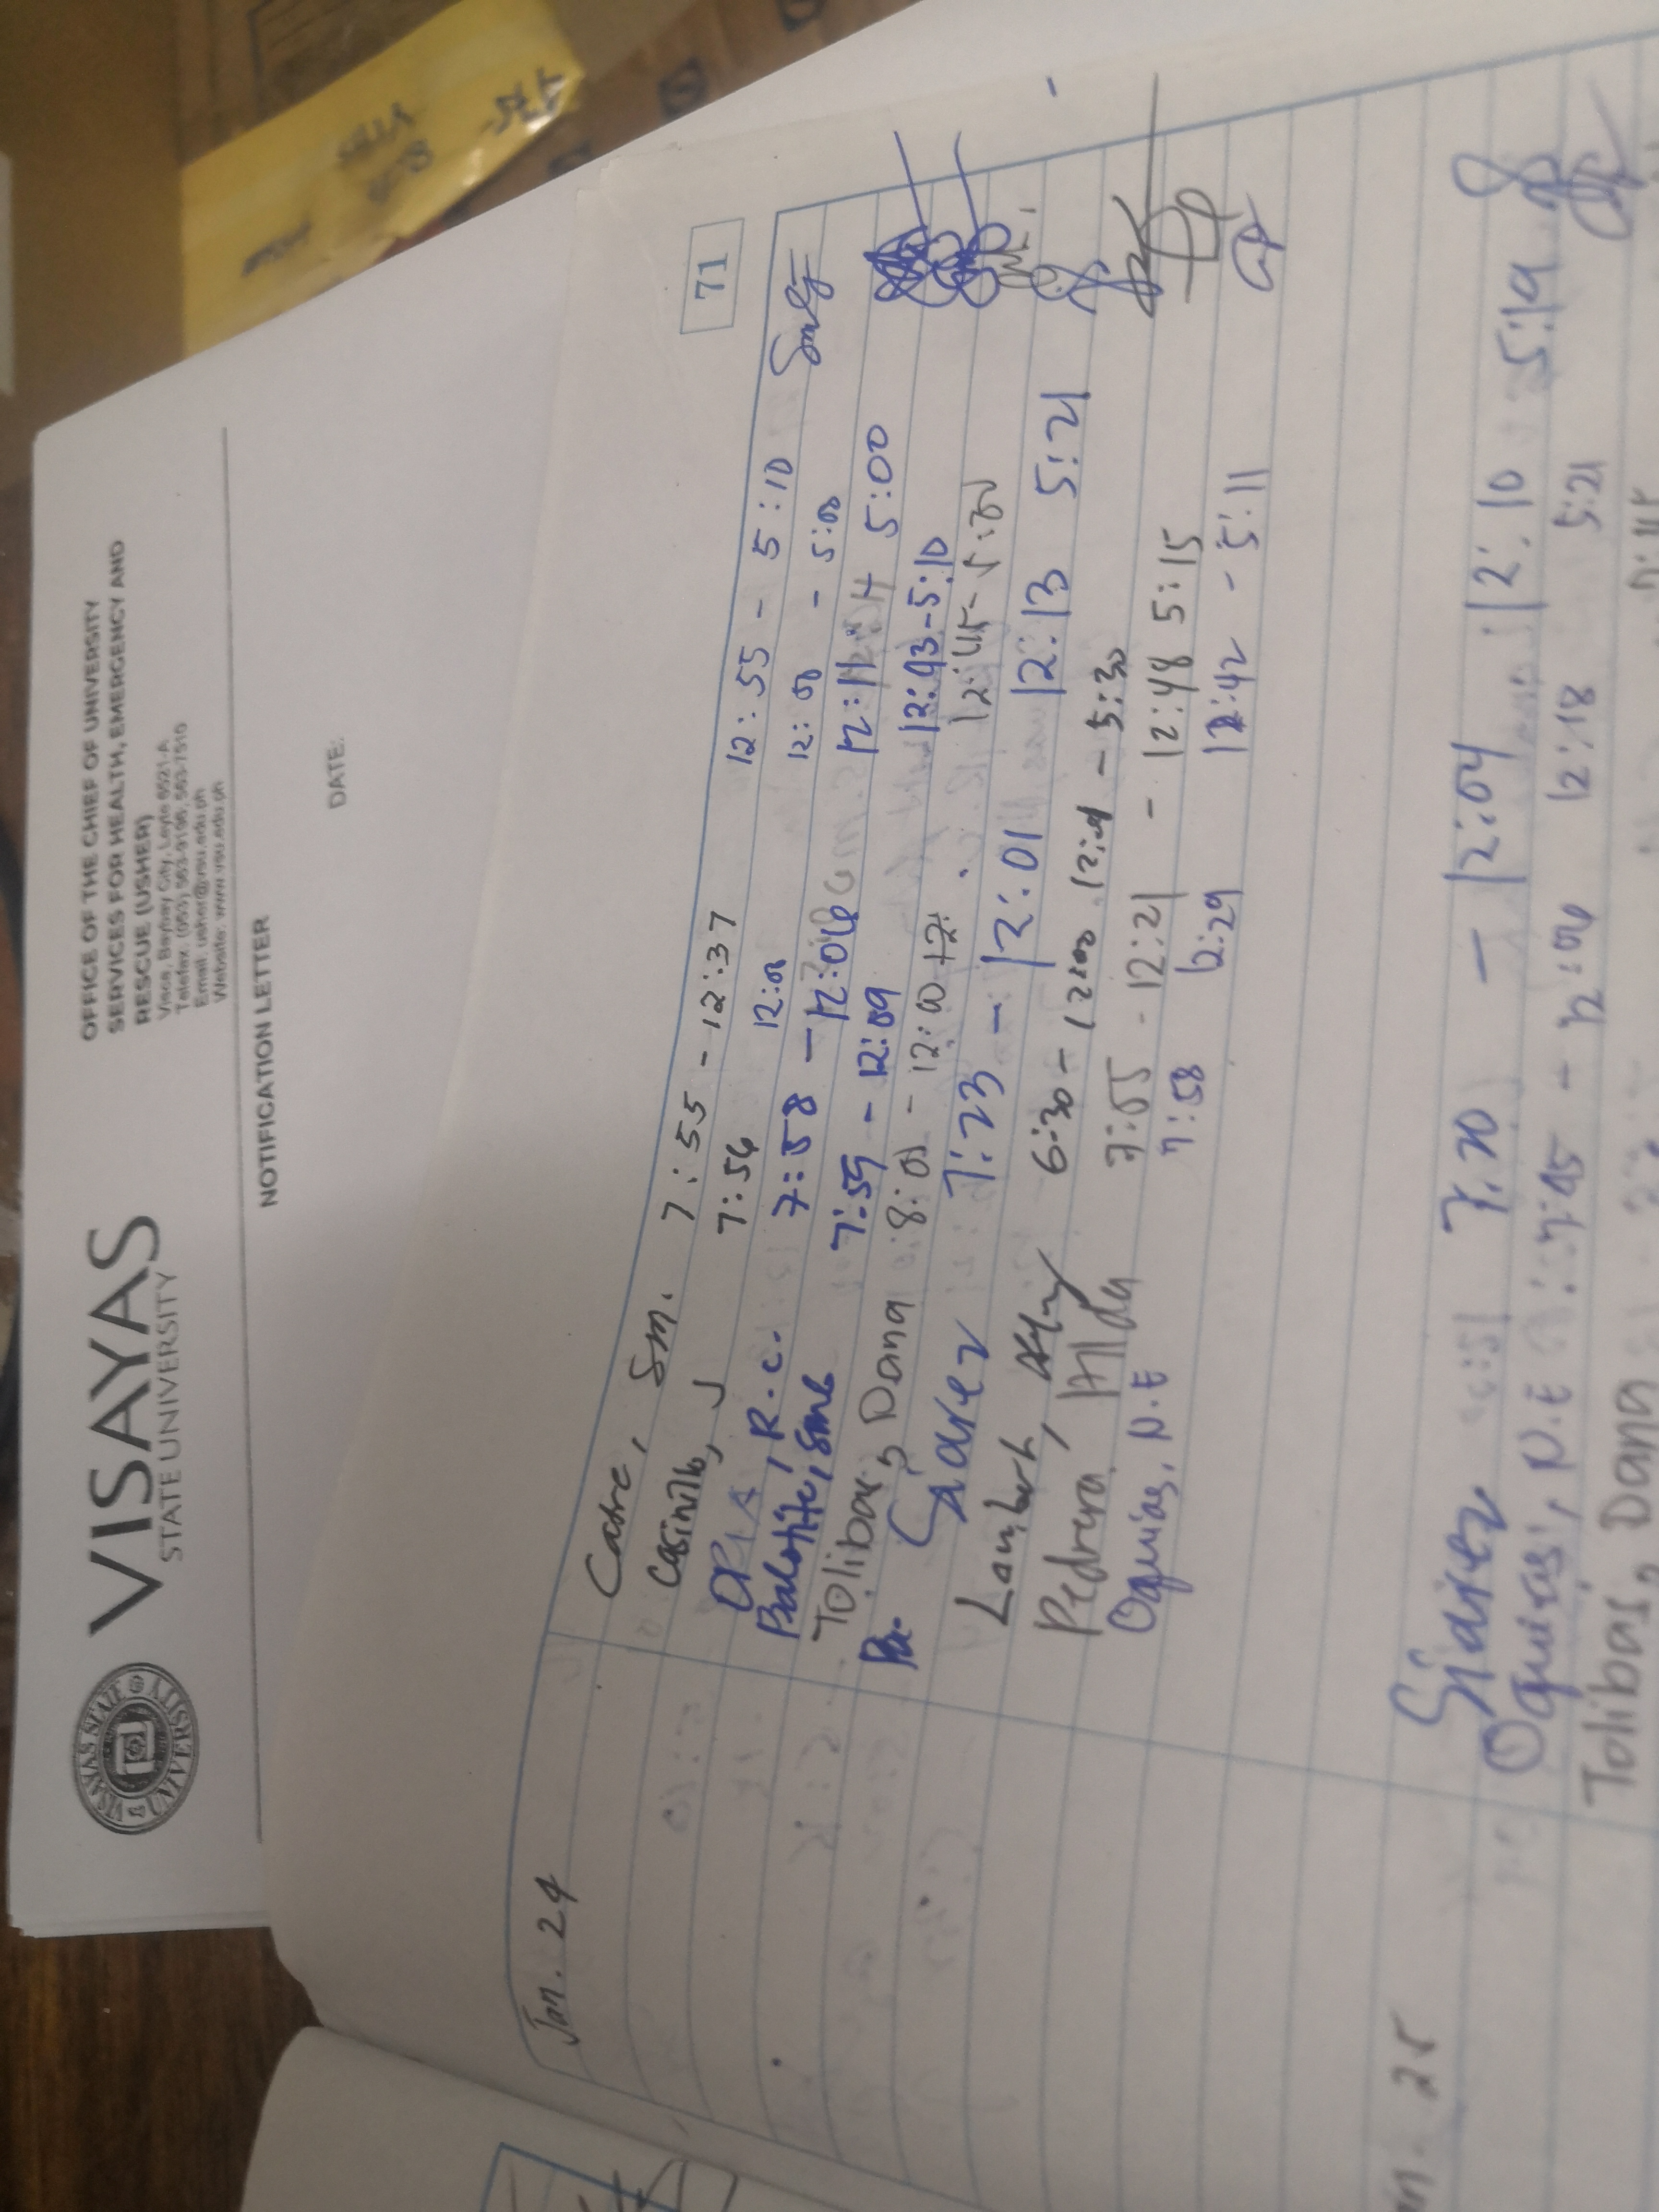 VISAYAS
STATE UNIVERSITY
OFFICE OF THE CHIEF OF UNIVERSITY
SERVICES FOR HEALTH, EMERGENCY AND
RESCUE (USHER)
Visca, Baybay City, Leyte 6521-A
Email: usher@vsu.edu.ph
Website: www.vsu.edu.ph
NOTIFICATION LETTER
DATE:
VISAYAS STATE UNIVERSITY
71
Jan. 24
Cabre, Sm. 7:55 - 12:37 12:55 - 5:10
Casinillo, J 7:56 12:00 12:00 - 5:00
R.C. 7:58 - 12:06 12:11 5:00
7:59 - 12:09 12:43 - 5:10
Tolibas, Dana 8:01 - 12:00 12:45 - 5:30
Siarez 7:23 - 12:01 12:13 5:21
Lambert, 6:30 - 1200 12:01 - 5:30
Pedrera, Alda 7:55 - 12:21 - 12:48 5:15
Oquias, N.E 7:58 12:29 12:42 - 5:11
25
Siarez 7:20 - 12:04 12:10 5:19
Oquias, N.E 7:45 - 12:06 12:18 5:21
Tolibas, Dana